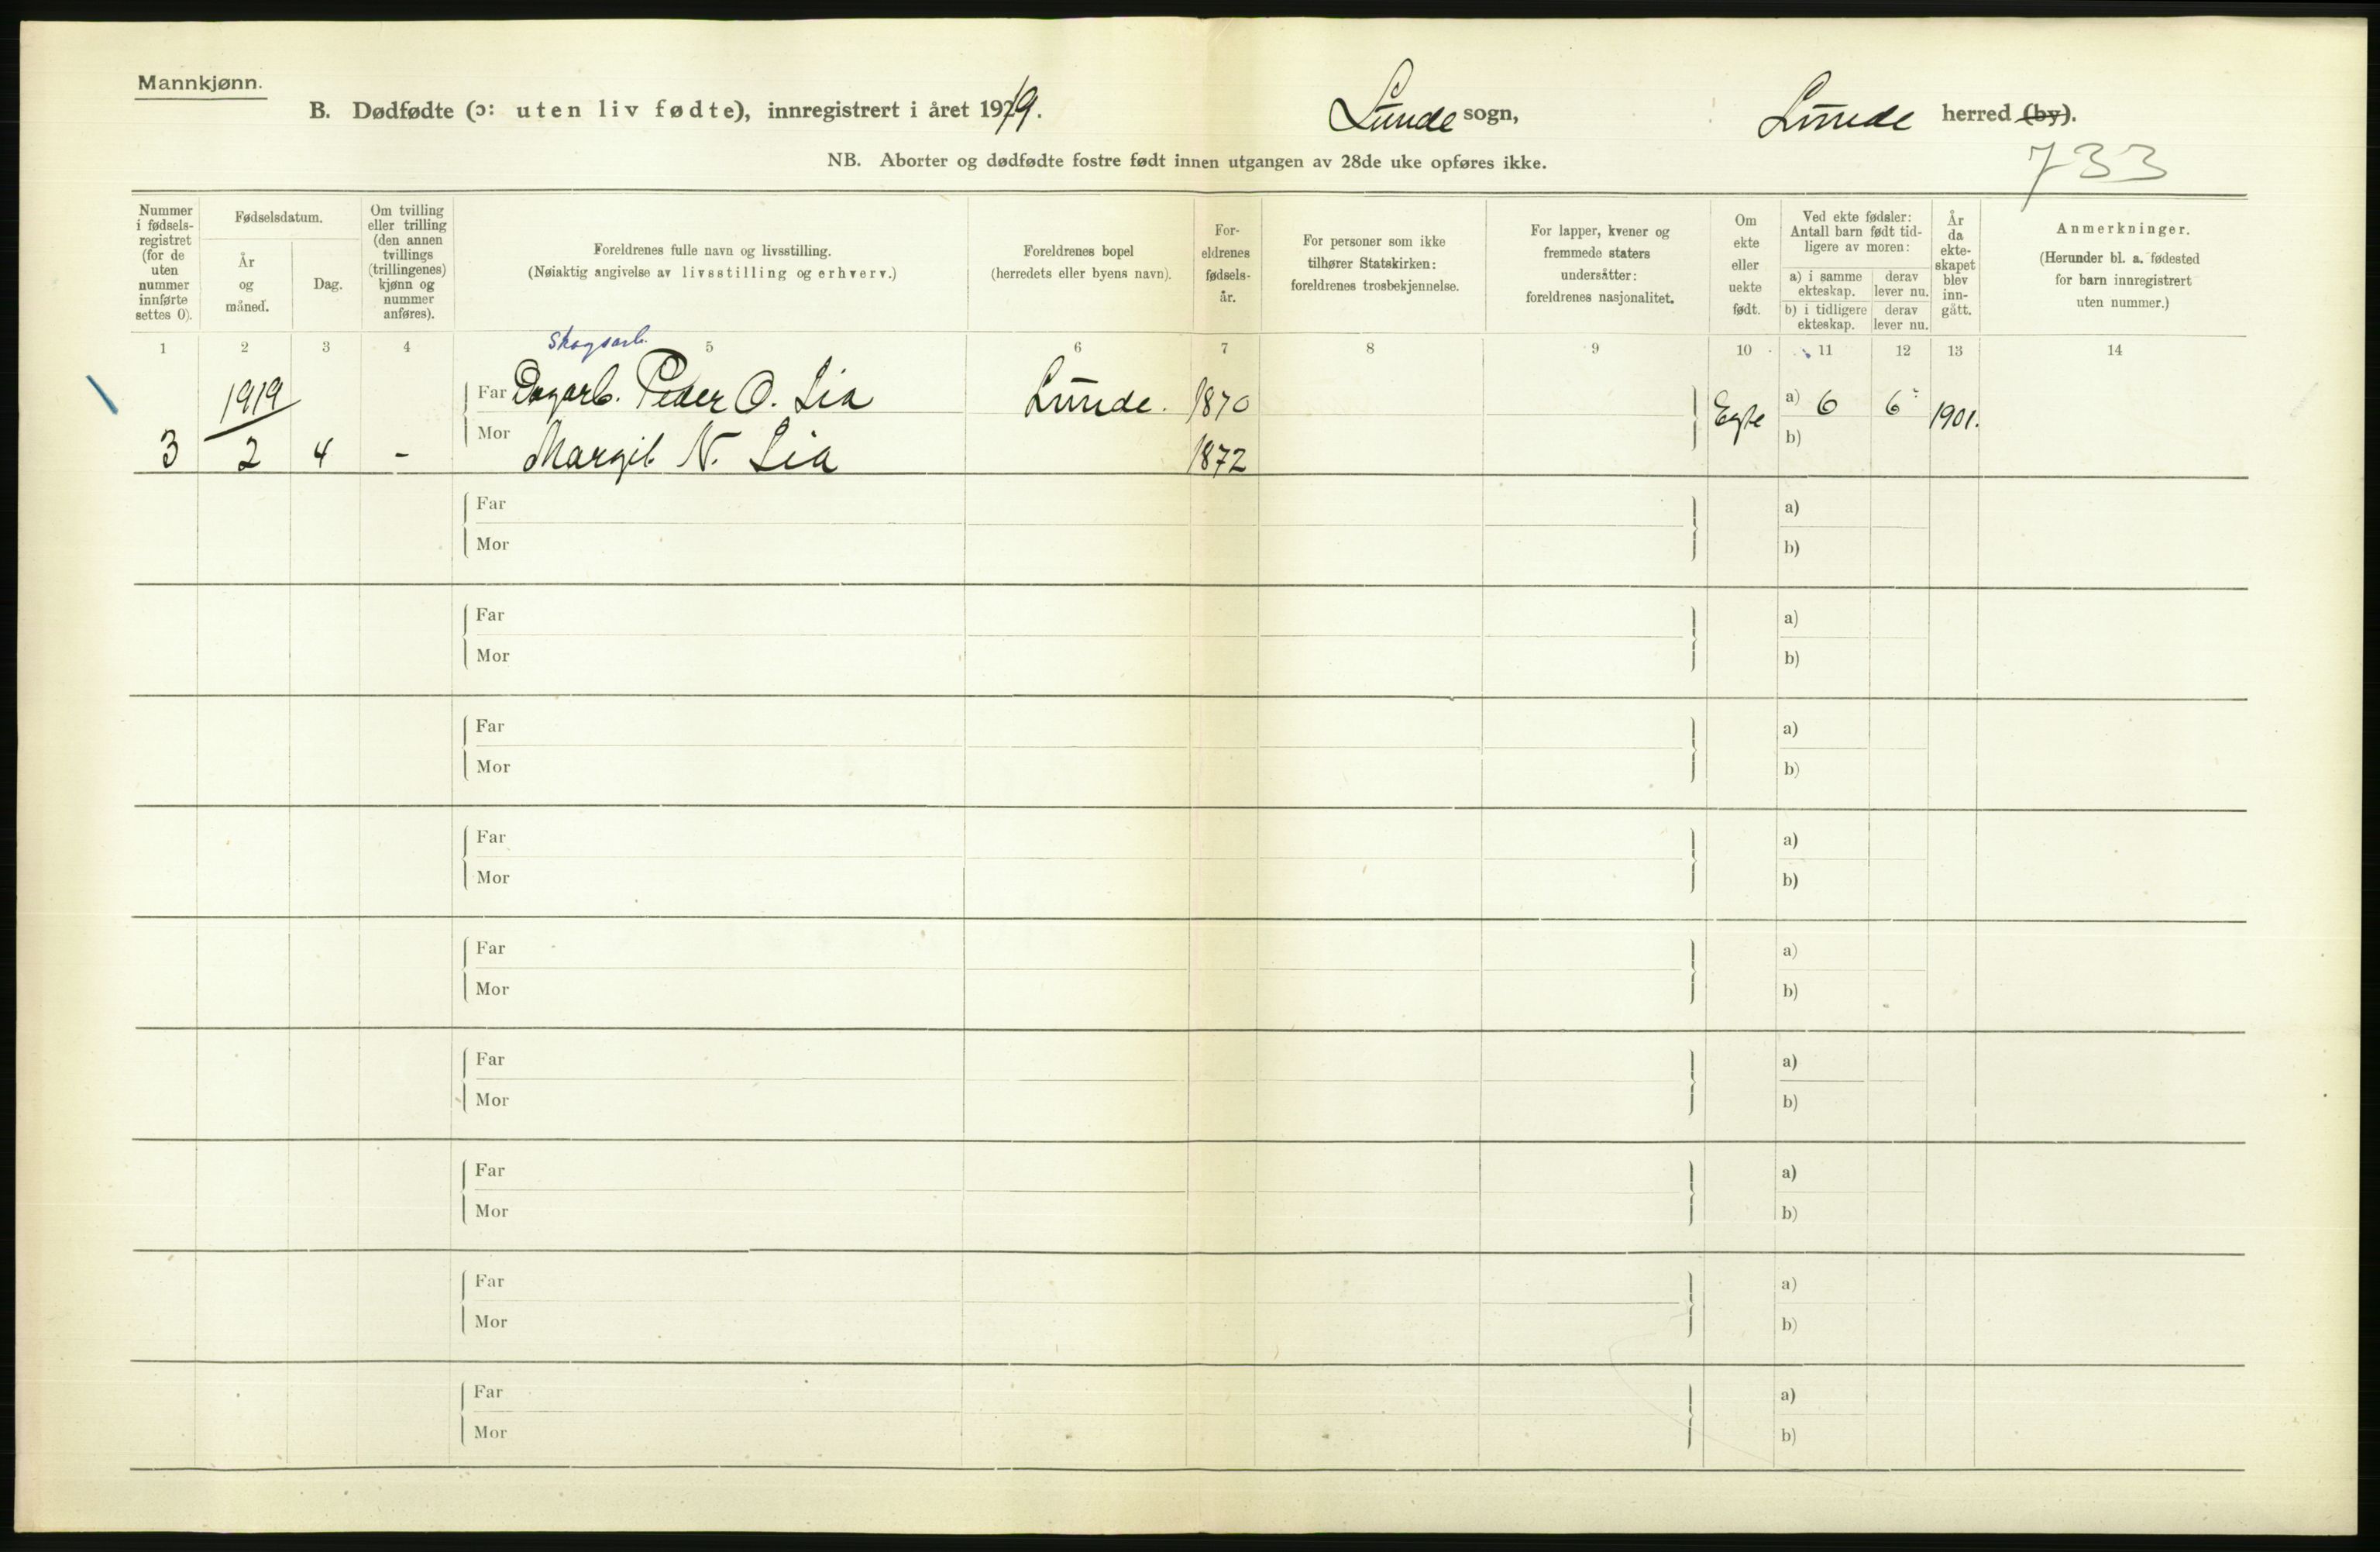 Mannkjønn.
B. Dødfødte (ɔ: uten liv fødte), innregistrert i året 1919. Lunde sogn, Lunde herred (by).
NB. Aborter og dødfødte fostre født innen utgangen av 28de uke opføres ikke.
733
Nummer i fødsels-registret (for de uten nummer innførte settes 0).
Fødselsdatum.
År og måned.
Dag.
Om tvilling eller trilling (den annen tvillings (trillingenes) kjønn og nummer anføres).
Foreldrenes fulle navn og livsstilling.
(Nøiaktig angivelse av livsstilling og erhverv.)
Foreldrenes bopel
(herredets eller byens navn).
For-eldrenes fødsels-år.
For personer som ikke tilhører Statskirken: foreldrenes trosbekjennelse.
For lapper, kvener og fremmede staters undersåtter: foreldrenes nasjonalitet.
Om ekte eller uekte født.
Ved ekte fødsler: Antall barn født tid-ligere av moren:
a) i samme ekteskap. derav lever nu.
b) i tidligere ekteskap. derav lever nu.
År da ekte-skapet blev inn-gått.
Anmerkninger.
(Herunder bl. a. fødested for barn innregistrert uten nummer.)
1 2 3 4 5 6 7 8 9 10 11 12 13 14
Skogsarb.
1919 Far Dagarb. Peder O. Lia Lunde. 1870 Egte a) 6 6 1901.
3 2 4 - Mor Margit N. Lia 1872 b)
Far a)
Mor b)
Far a)
Mor b)
Far a)
Mor b)
Far a)
Mor b)
Far a)
Mor b)
Far a)
Mor b)
Far a)
Mor b)
Far a)
Mor b)
Far a)
Mor b)